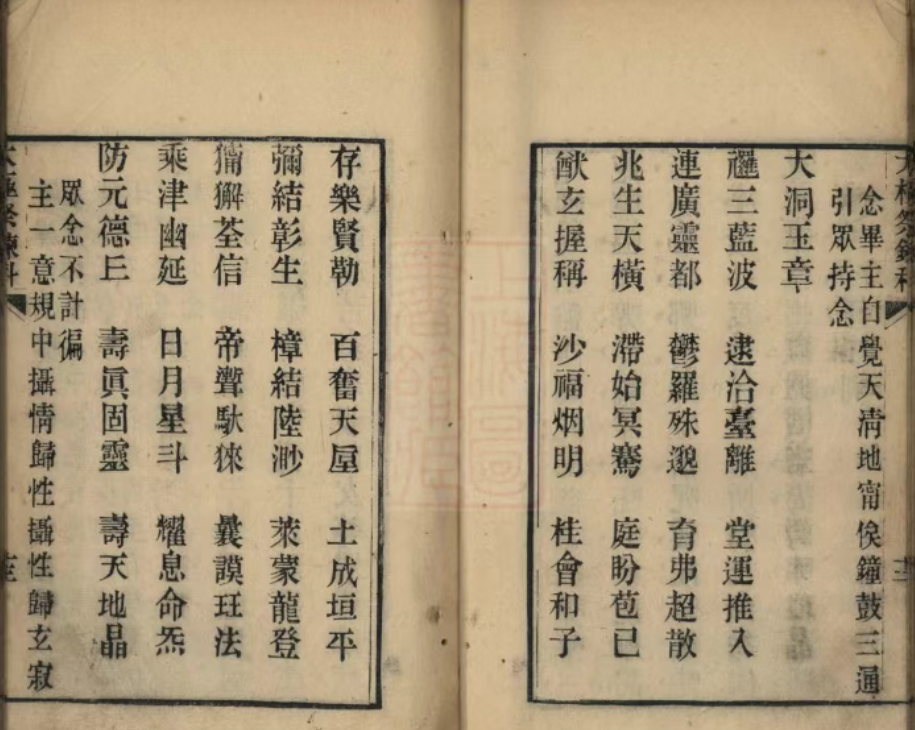 念畢主自覺天淸地甯俟鐘鼓三通
引眾持念
大洞玉章
三藍波 逮洽臺離 堂運推入
連廣靈都 鬱羅殊邈 育弗超散
兆生天橫 滯始冥騫 庭盼苞已
猷玄握稱 沙福烟明 桂會和子
存樂賢勒 百奮天 土成垣平
彌結彰生 樟結陸渺 萊蒙龍登
荃信 帝聾馱徠 曩謨玨法
乘津幽延 日月星斗 耀息命炁
防元德 壽眞固靈 壽天地晶
眾念不計徧
主一意規中攝情歸性攝性歸玄寂